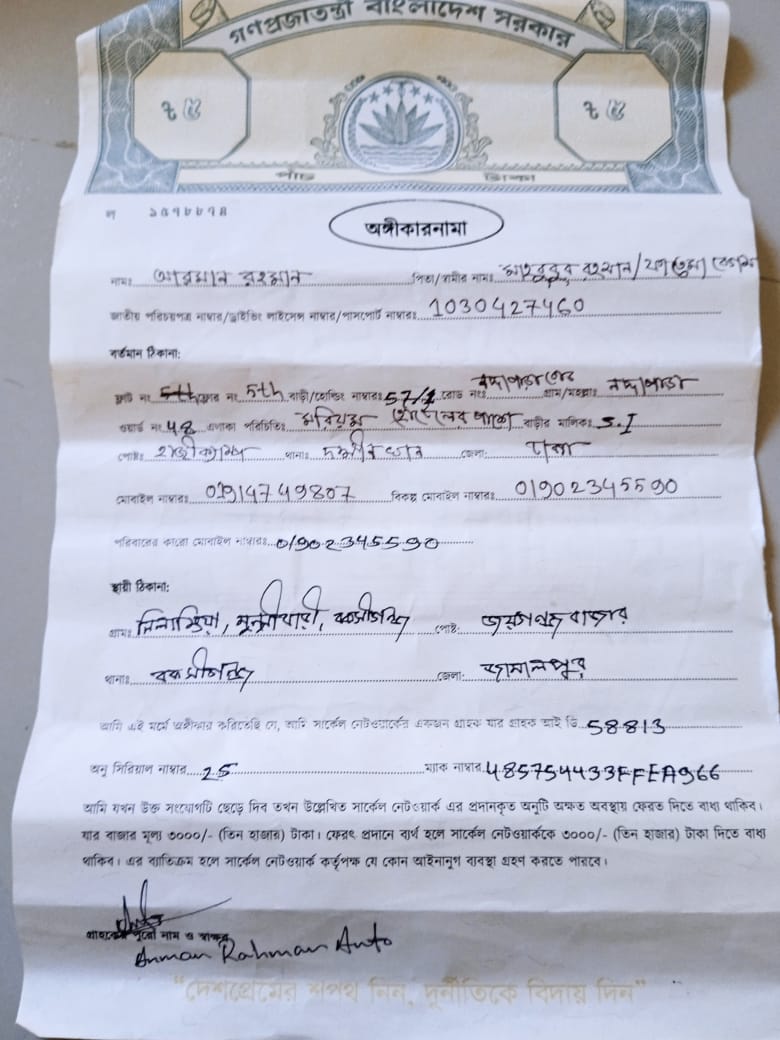 গণপ্রজাতন্ত্রী বাংলাদেশ সরকার
৳ ৫ ৳ ৫
পাঁচ টাকা
অঙ্গীকারনামা
নামঃ আরমান রহমান পিতা/স্বামীর নামঃ মাহবুবুর রহমান/
জাতীয় পরিচয়পত্র নাম্বার/ড্রাইভিং লাইসেন্স নাম্বার/পাসপোর্ট নাম্বারঃ 1030427460
বর্তমান ঠিকানা:
ফ্ল্যাট নং ফ্লোর নং 5th বাড়ী/হোল্ডিং নাম্বারঃ 57/1 রোড নংঃ গ্রাম/মহল্লাঃ
ওয়ার্ড নং 48 এলাকা পরিচিতিঃ মরিয়ম পাশে বাড়ীর মালিকঃ S.I
পোষ্টঃ থানাঃ জেলা: ঢাকা
মোবাইল নাম্বারঃ 01914749807 বিকল্প মোবাইল নাম্বারঃ 01902345590
পরিবারের কারো মোবাইল নাম্বারঃ 01902345590
স্থায়ী ঠিকানা:
গ্রামঃ পোষ্ট: বাজার
থানাঃ বকসীগঞ্জ জেলা: জামালপুর
আমি এই মর্মে অঙ্গীকার করিতেছি যে, আমি সার্কেল নেটওয়ার্কের একজন গ্রাহক যার গ্রাহক আই ডি 58813
অনু সিরিয়াল নাম্বার 25 ম্যাক নাম্বার 485754433FFEA966
আমি যখন উক্ত সংযোগটি ছেড়ে দিব তখন উল্লেখিত সার্কেল নেটওয়ার্ক এর প্রদানকৃত অনুটি অক্ষত অবস্থায় ফেরত দিতে বাধ্য থাকিব।
যার বাজার মূল্য ৩০০০/- (তিন হাজার) টাকা। ফেরৎ প্রদানে ব্যর্থ হলে সার্কেল নেটওয়ার্ককে ৩০০০/- (তিন হাজার) টাকা দিতে বাধ্য
থাকিব। এর ব্যতিক্রম হলে সার্কেল নেটওয়ার্ক কর্তৃপক্ষ যে কোন আইনানুগ ব্যবস্থা গ্রহণ করতে পারবে।
গ্রাহকের পুরো নাম ও স্বাক্ষর
Arman Rahman Anto
“দেশপ্রেমের শপথ নিন, দুর্নীতিকে বিদায় দিন”